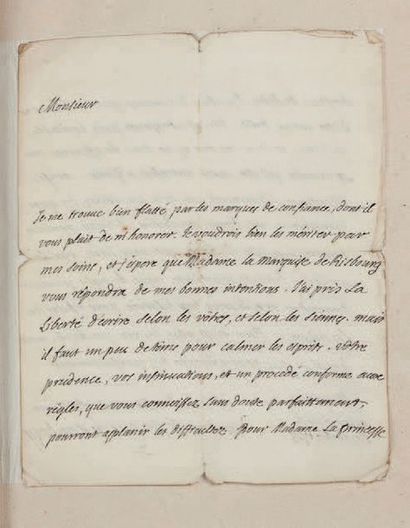 Monsieur
Je me trouve bien flatté par les marques de confiance, dont il
vous plait de m'honorer. Je voudrois bien les mériter par
mes soins, et j'espere que Madame la marquise de Risbourg
vous répondra de mes bonnes intentions. J'ai pris La
Liberté d'écrire selon les vôtres, et selon les siennes. mais
il faut un peu de tems pour calmer les esprits. vôtre
prudence, vos insinuations, et un procedé conforme aux
régles, que vous connoissez sans doute parfaittement,
pourront applanir les difficultez. Pour Madame La princesse